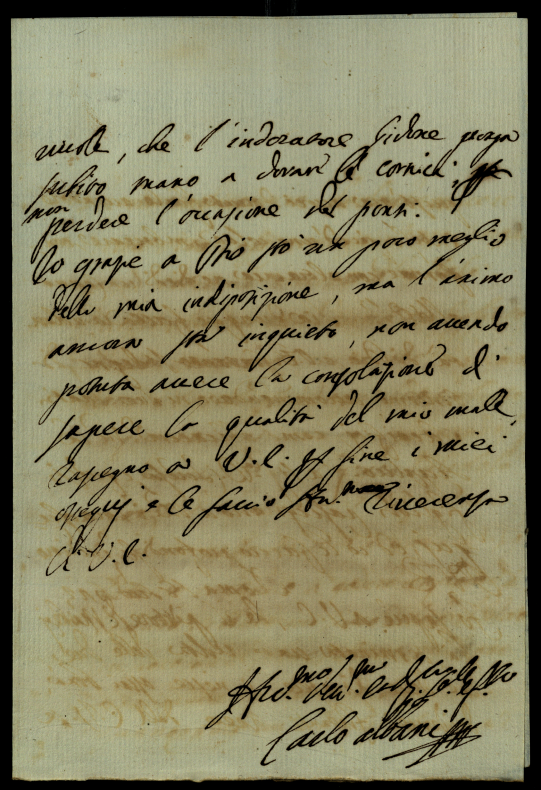 vuole, che l'indoratore Gidone ponga
subito mano a dorare le cornici, per
non perdere l'occasione dei ponti.
Io grazie a Dio stò un poco meglio
della mia indisposizione, ma l'animo
ancora stà inquieto, non avendo
potuta avere la consolazione di
sapere la qualità del mio male,
rasegno a V.E. per fine i miei
ossequij e le faccio riverenza
Di V.E.
Carlo Albani